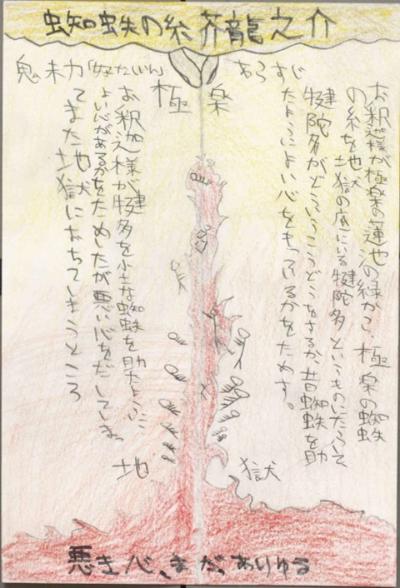 蜘蛛の糸 芥龍之介
あらすじ
お釈迦様が極楽の蓮池の縁から、極楽の蜘蛛
の糸を地獄の底にいる犍陀多というものにたらして
犍陀多がどういうこうどうをするか、昔蜘蛛を助
たようによい心をもっているかをためす。
極楽
魅力
お釈加え様が犍多を小さな蜘蛛を助たように、
よい心があるかをためしたが悪い心をだしてしまっ
てまた地獄におちてしまうところ
地獄
悪き心、まだ、ありゅる